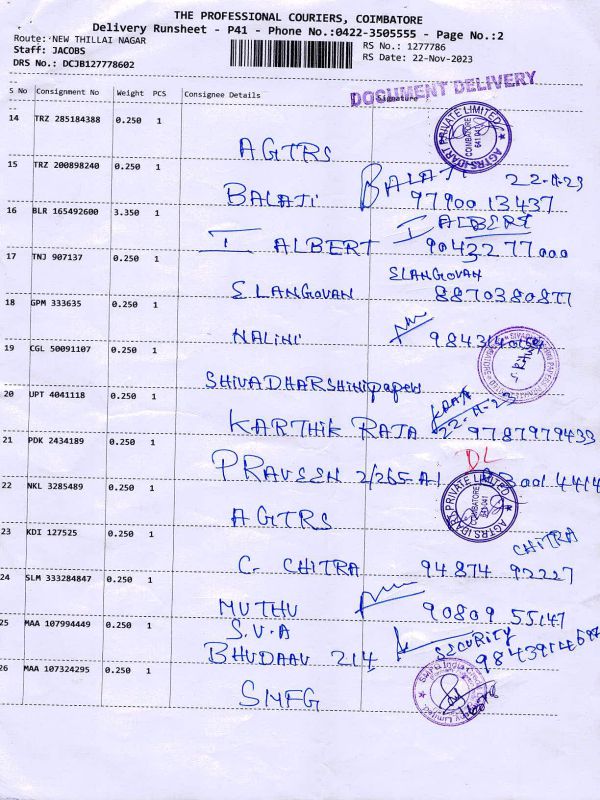 THE PROFESSIONAL COURIERS, COIMBATORE
Delivery Runsheet - P41 - Phone No.:0422-3505555 - Page No.:2
Route: NEW THILLAI NAGAR
Staff: JACOBS
DRS No.: DCJB127778602
RS No.: 1277786
RS Date: 22-Nov-2023
DOCUMENT DELIVERY
S No Consignment No Weight PCS Consignee Details Signature
14 TRZ 285184388 0.250 1 AGTRS
AGTRSIDARI PRIVATE LIMITED COIMBATORE 641 041
15 TRZ 200898240 0.250 1 BALAJI BALAJI 22-11-23
9790013437
16 BLR 165492600 3.350 1 I ALBERT I ALBERT
9043277000
17 TNJ 907137 0.250 1 ELANGOVAN ELANGOVAN
8870380877
18 GPM 333635 0.250 1 NALINI
19 CGL 50091107 0.250 1 SHIVADHARSHINI papers
20 UPT 4041118 0.250 1 KARTHIK RAJA 22-11-23 9787979433
21 PDK 2434189 0.250 1 PRAVEEN 2/265-A1
DL
22 NKL 3285489 0.250 1 AGTRS
AGTRSIDARI PRIVATE LIMITED COIMBATORE 641 041
23 KDI 127525 0.250 1 C. CHITRA CHITRA
94874 92227
24 SLM 333284847 0.250 1 MUTHU 90809 55147
25 MAA 107994449 0.250 1 S.V.A
SECURITY
26 MAA 107324295 0.250 1 SMFG
SMFG India Limited